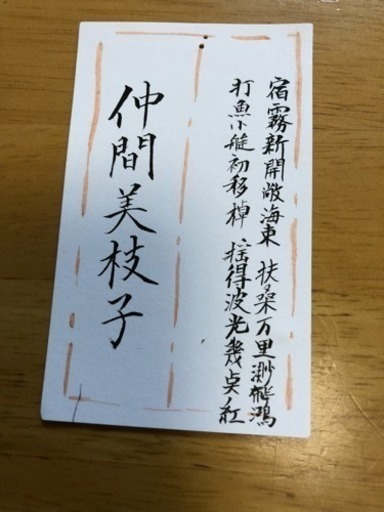 宿霧新開敞海東 扶桑万里渺飛鴻
打魚小艇初移棹 揺得波光幾点紅
仲間美枝子